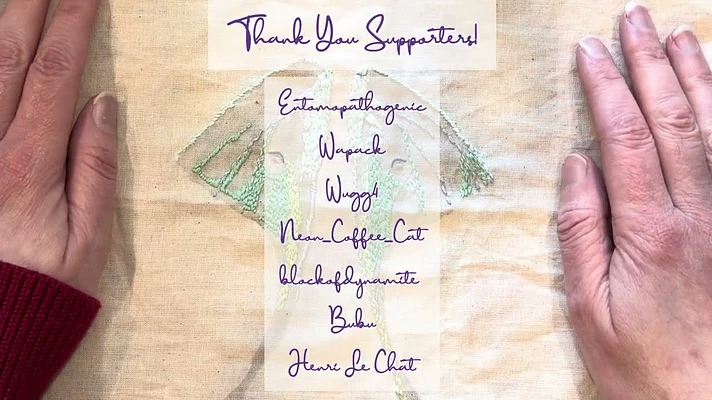 Thank You Supporters!
Entomopathogenic
Wapack
Wugg4
Neon_Coffee_Cat
blockofdynamite
Bubu
Henri Le Chat